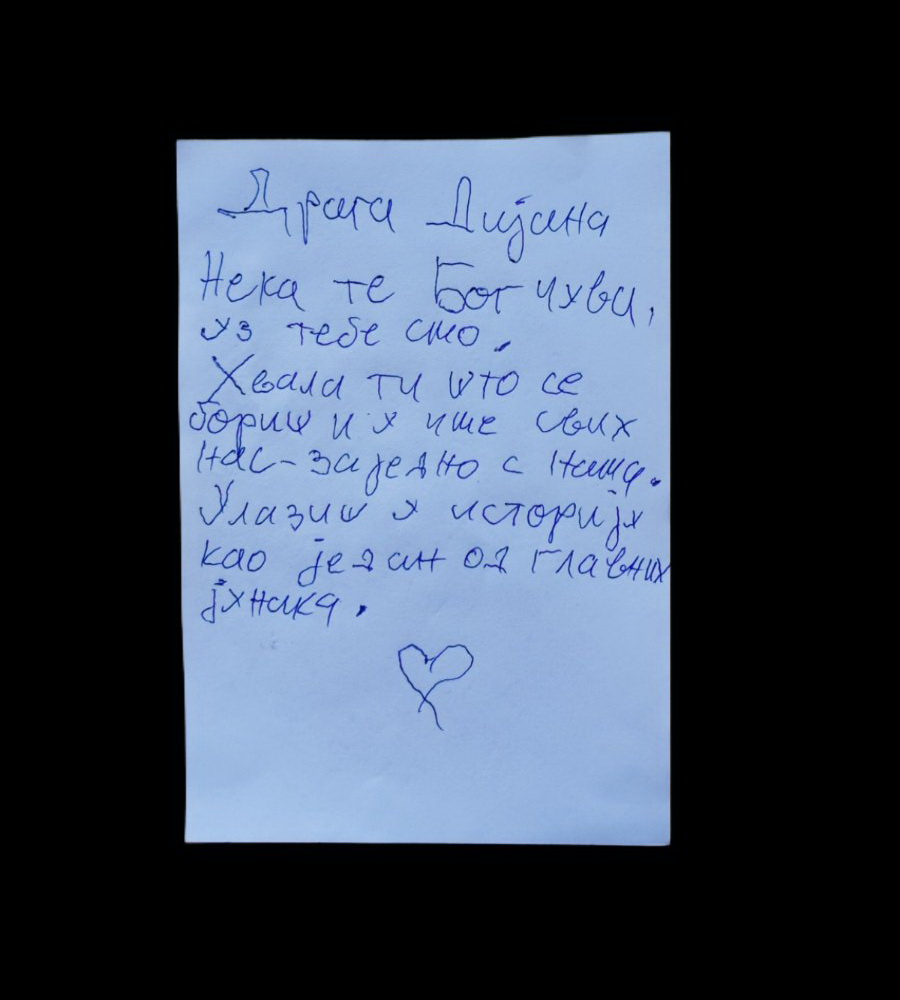 Драга Дијана
Нека те Бог чува,
уз тебе смо.
Хвала ти што се
бориш и у име свих
нас - заједно с нама.
Улазиш у историју
као један од главних
јунака.